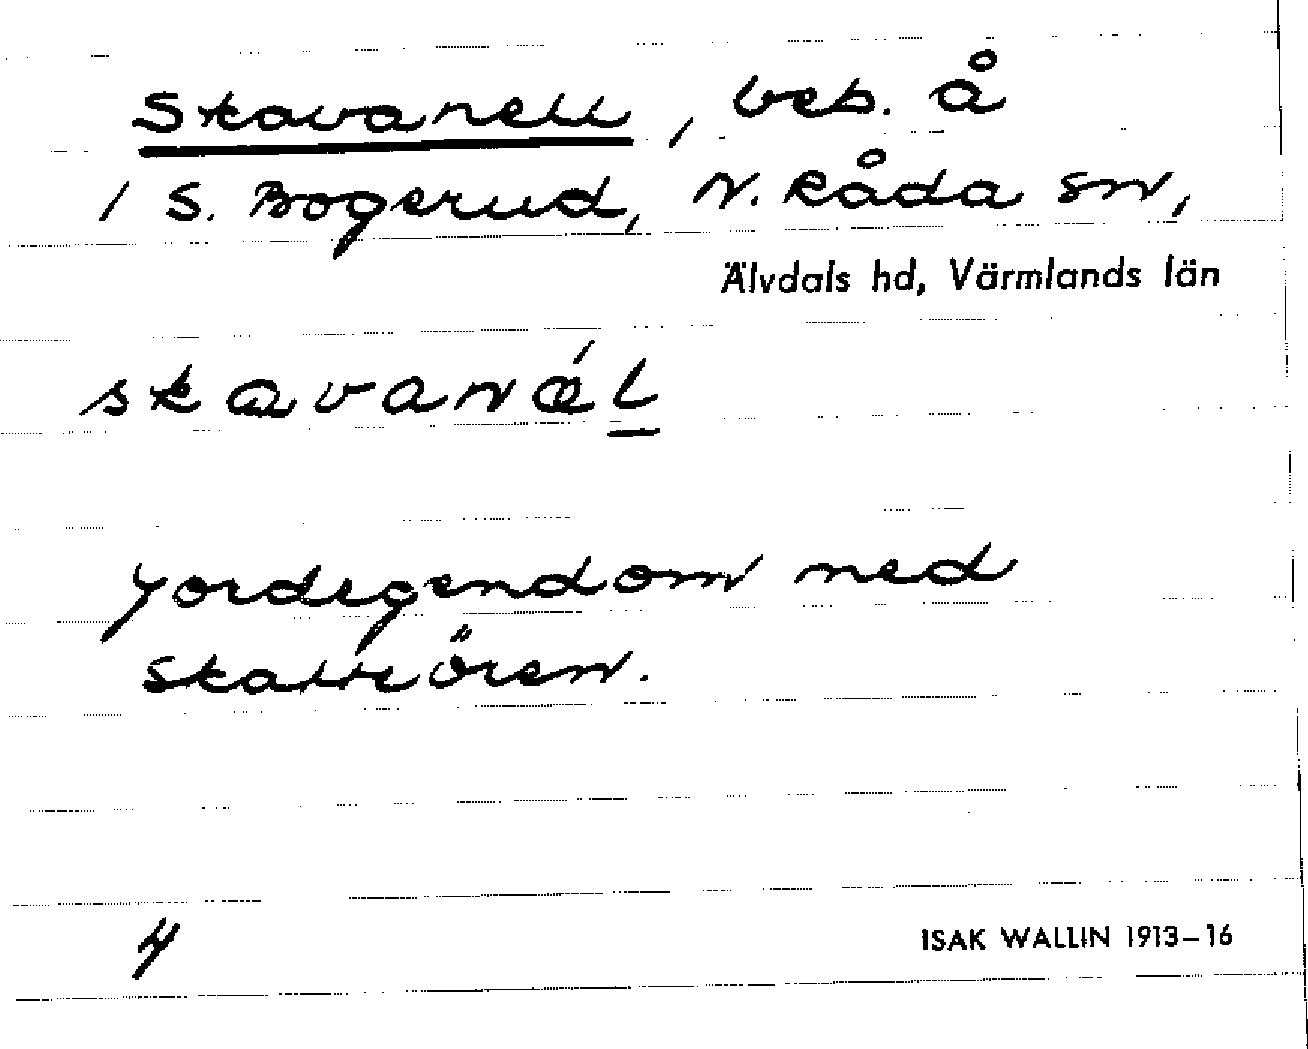 Skavanell, beb. å
1 S. Bogerud, N. Råda sn,
Älvdals hd, Värmlands län
skavanǽl
Jordegendom med
skatteören.
4
ISAK WALLIN 1913–16